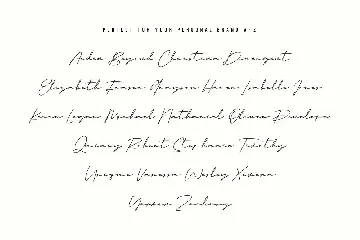 PERFECT FOR YOUR PERSONAL BRAND A-Z
Aiden Beyond Christian Davenport
Elizabeth Fansa Grayson Haven Isabella Jones
Kevin Logan Michael Nathaniel Olivia Penelope
Quincy Robert Stephanie Timothy
Unique Vanessa Wesley Xaviera